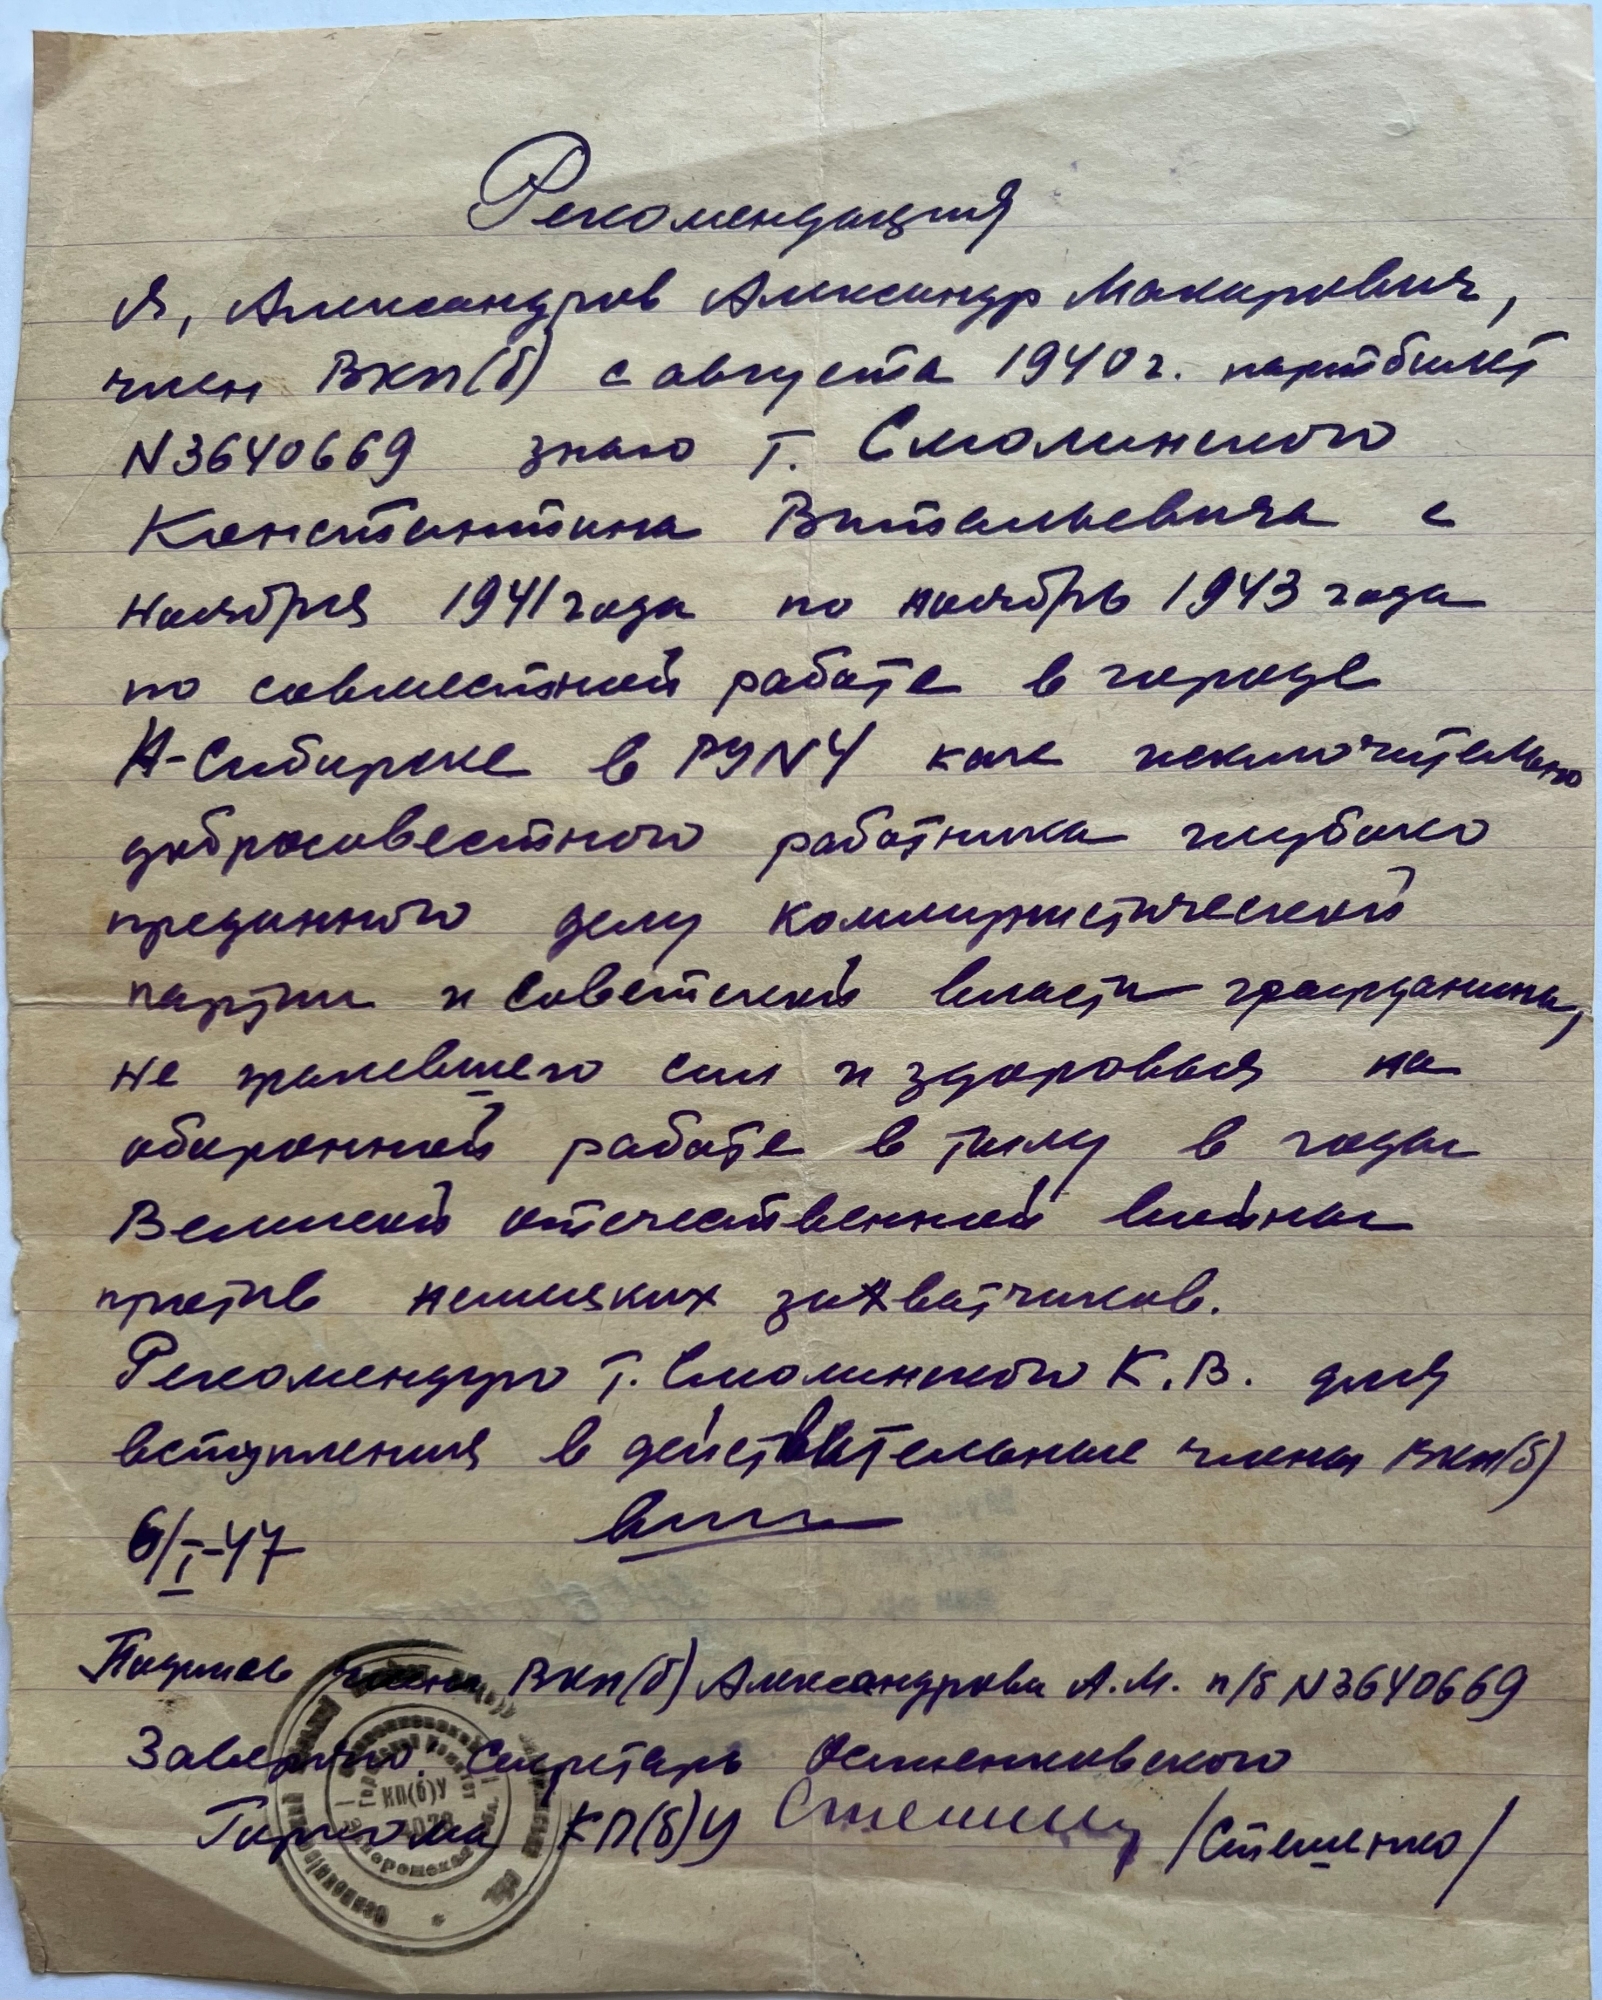 Рекомендация
Я, Александров Александр Макарович,
член ВКП(б) с августа 1940 г. партбилет
N 3640669 знаю т. Смолинского
Константина Витальевича с
ноября 1941 года по ноябрь 1943 года
по совместной работе в городе
Н-Сибирске в РУ N4 как исключительно
добросовестного работника глубоко
преданного делу коммунистической
партии и Советской власти гражданина,
не жалевшего сил и здоровья на
оборонной работе в тылу в годы
Великой отечественной войны
против немецких захватчиков.
Рекомендую т. Смолинского К.В. для
вступления в действительные члены ВКП(б)
6/I-47
Подпись члена ВКП(б) Александрова А.М. п/б N 3640669
Заверяю. Секретарь Осипенковского
Горкома КП(б)У /Стешенко/
КП(б)У